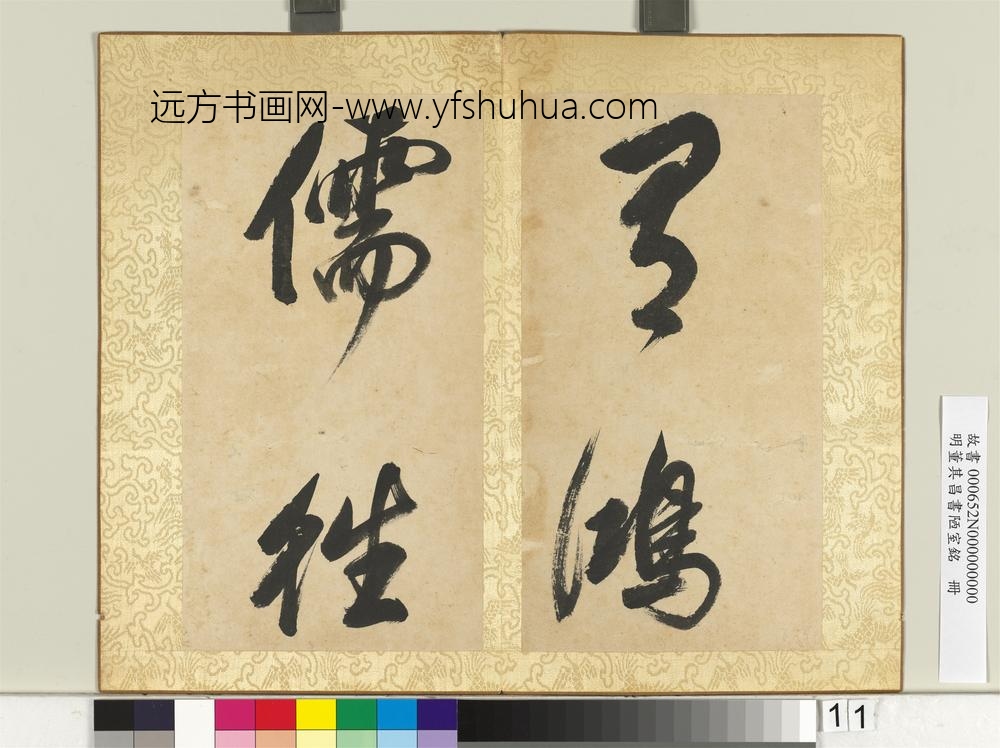 远方书画网-www.yfshuhua.com
有鴻
儒往
故書 000652N000000000
明董其昌書陋室銘 冊
11